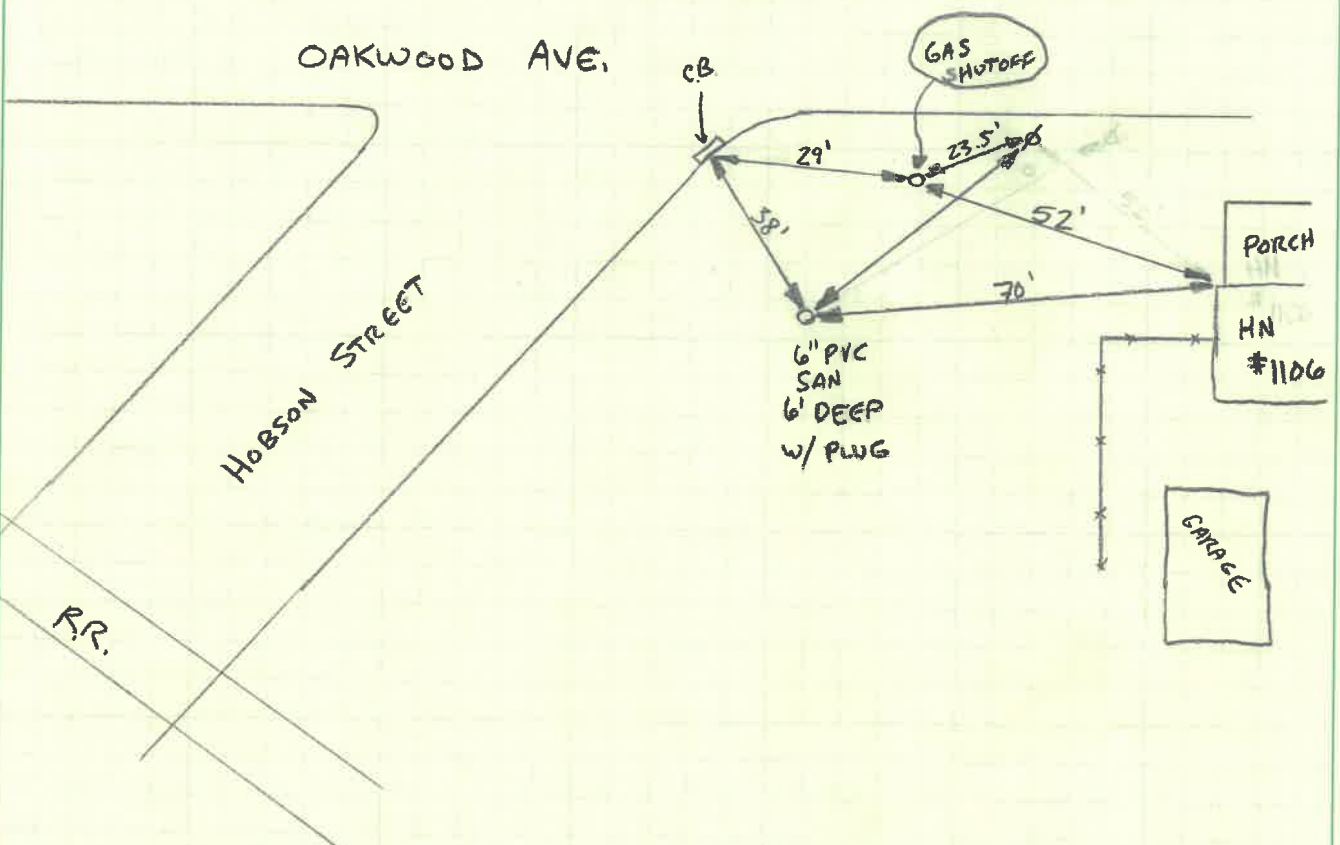 OAKWOOD AVE.
C.B.
GAS
SHUTOFF
29'
23.5'
38'
52'
70'
PORCH
HN
#1106
6" PVC
SAN
6' DEEP
W/ PLUG
HOBSON STREET
GARAGE
R.R.